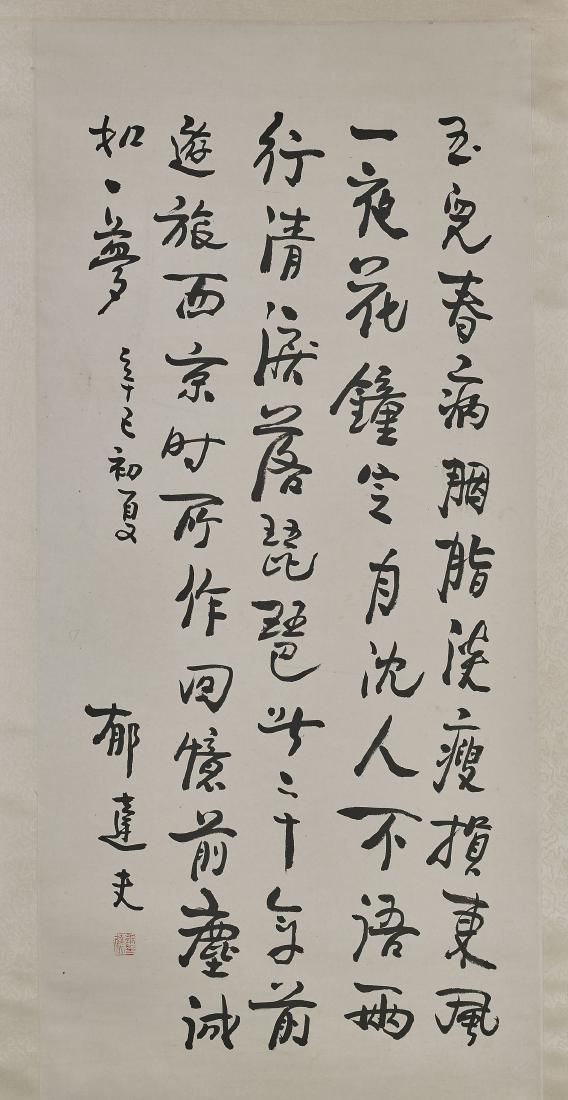 玉兒春病胭脂淡瘦損東風
一夜花鐘定月沈人不語兩
行清淚落琵琶此二十年前
遊旅西京时所作回憶前塵誠
如一夢 辛巳初夏 郁達夫